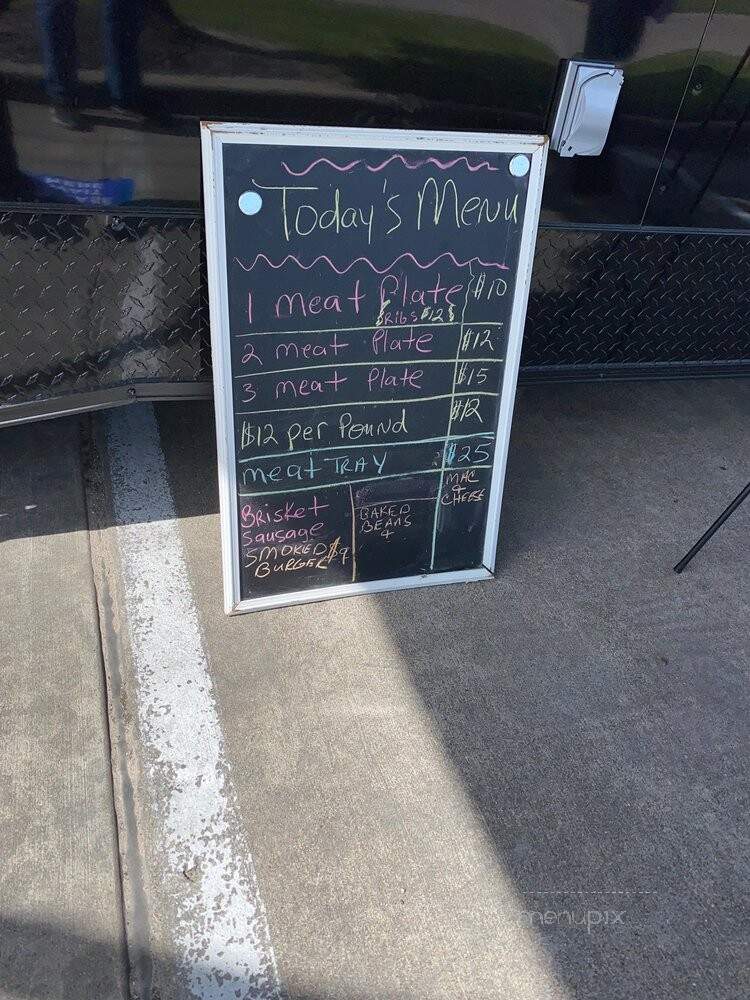 Today's Menu
1 meat Plate $10
RIBS $12
2 meat Plate $12
3 meat Plate $15
$12 per Pound $12
meat TRAY $25
Brisket
Sausage
SMOKED $9
BURGER
BAKED
BEANS
&
MAC
&
CHEESE
menupix